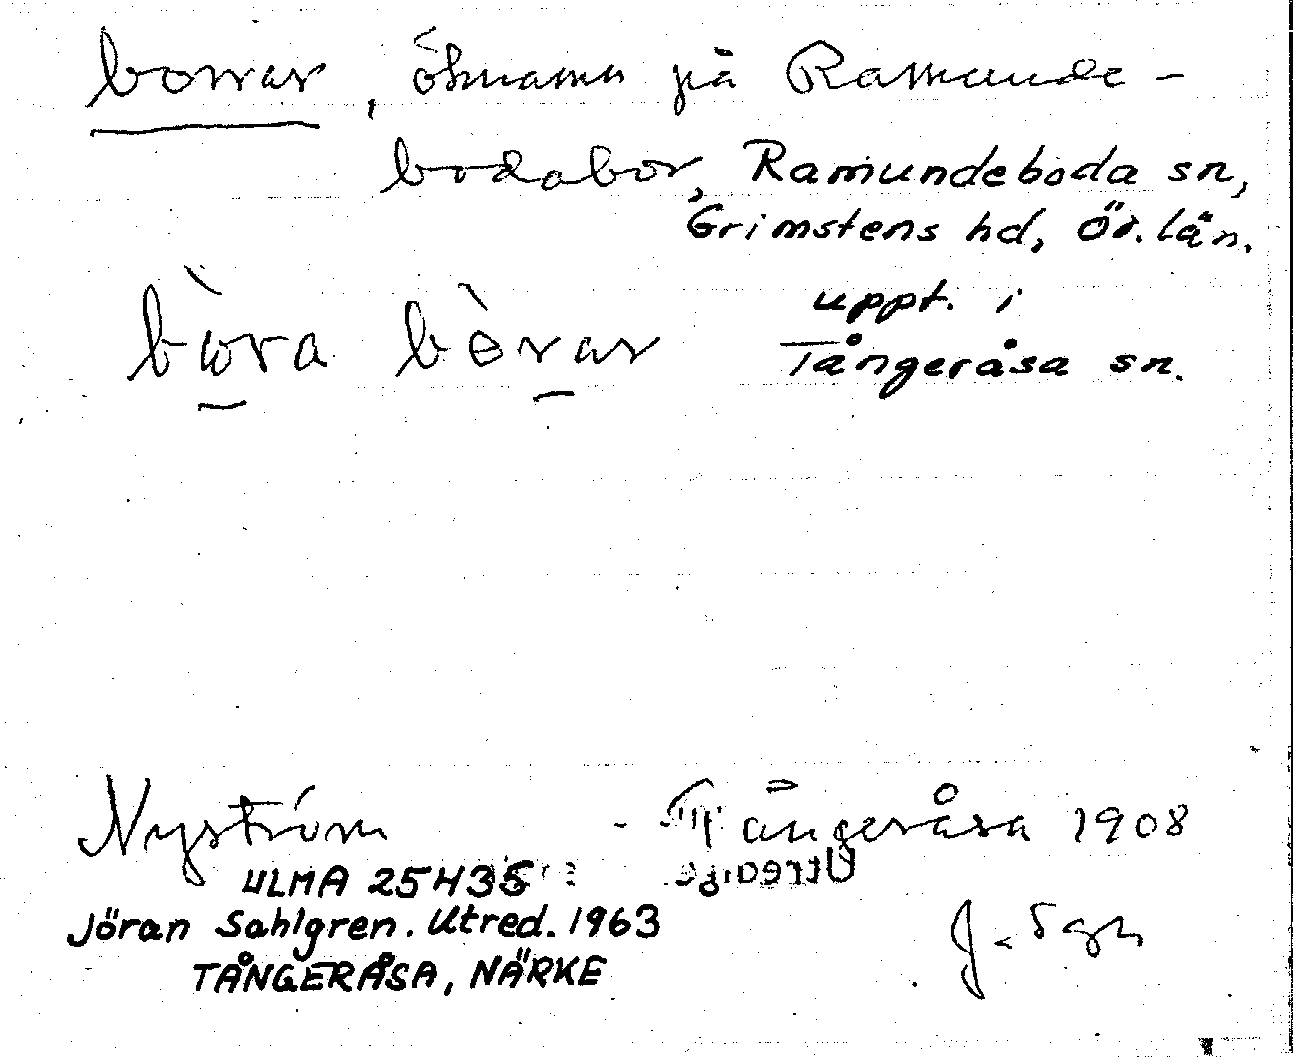 borrar, öknamn på Ramunde-
bodabor, Ramundeboda sn,
Grimstens hd, Ör. län.
uppt. i
Tångeråsa sn.
Nyström - Tångeråsa 1908
ULMA 25435
Jöran Sahlgren. Utred. 1963
TÅNGERÅSA, NÄRKE
J. Sgn